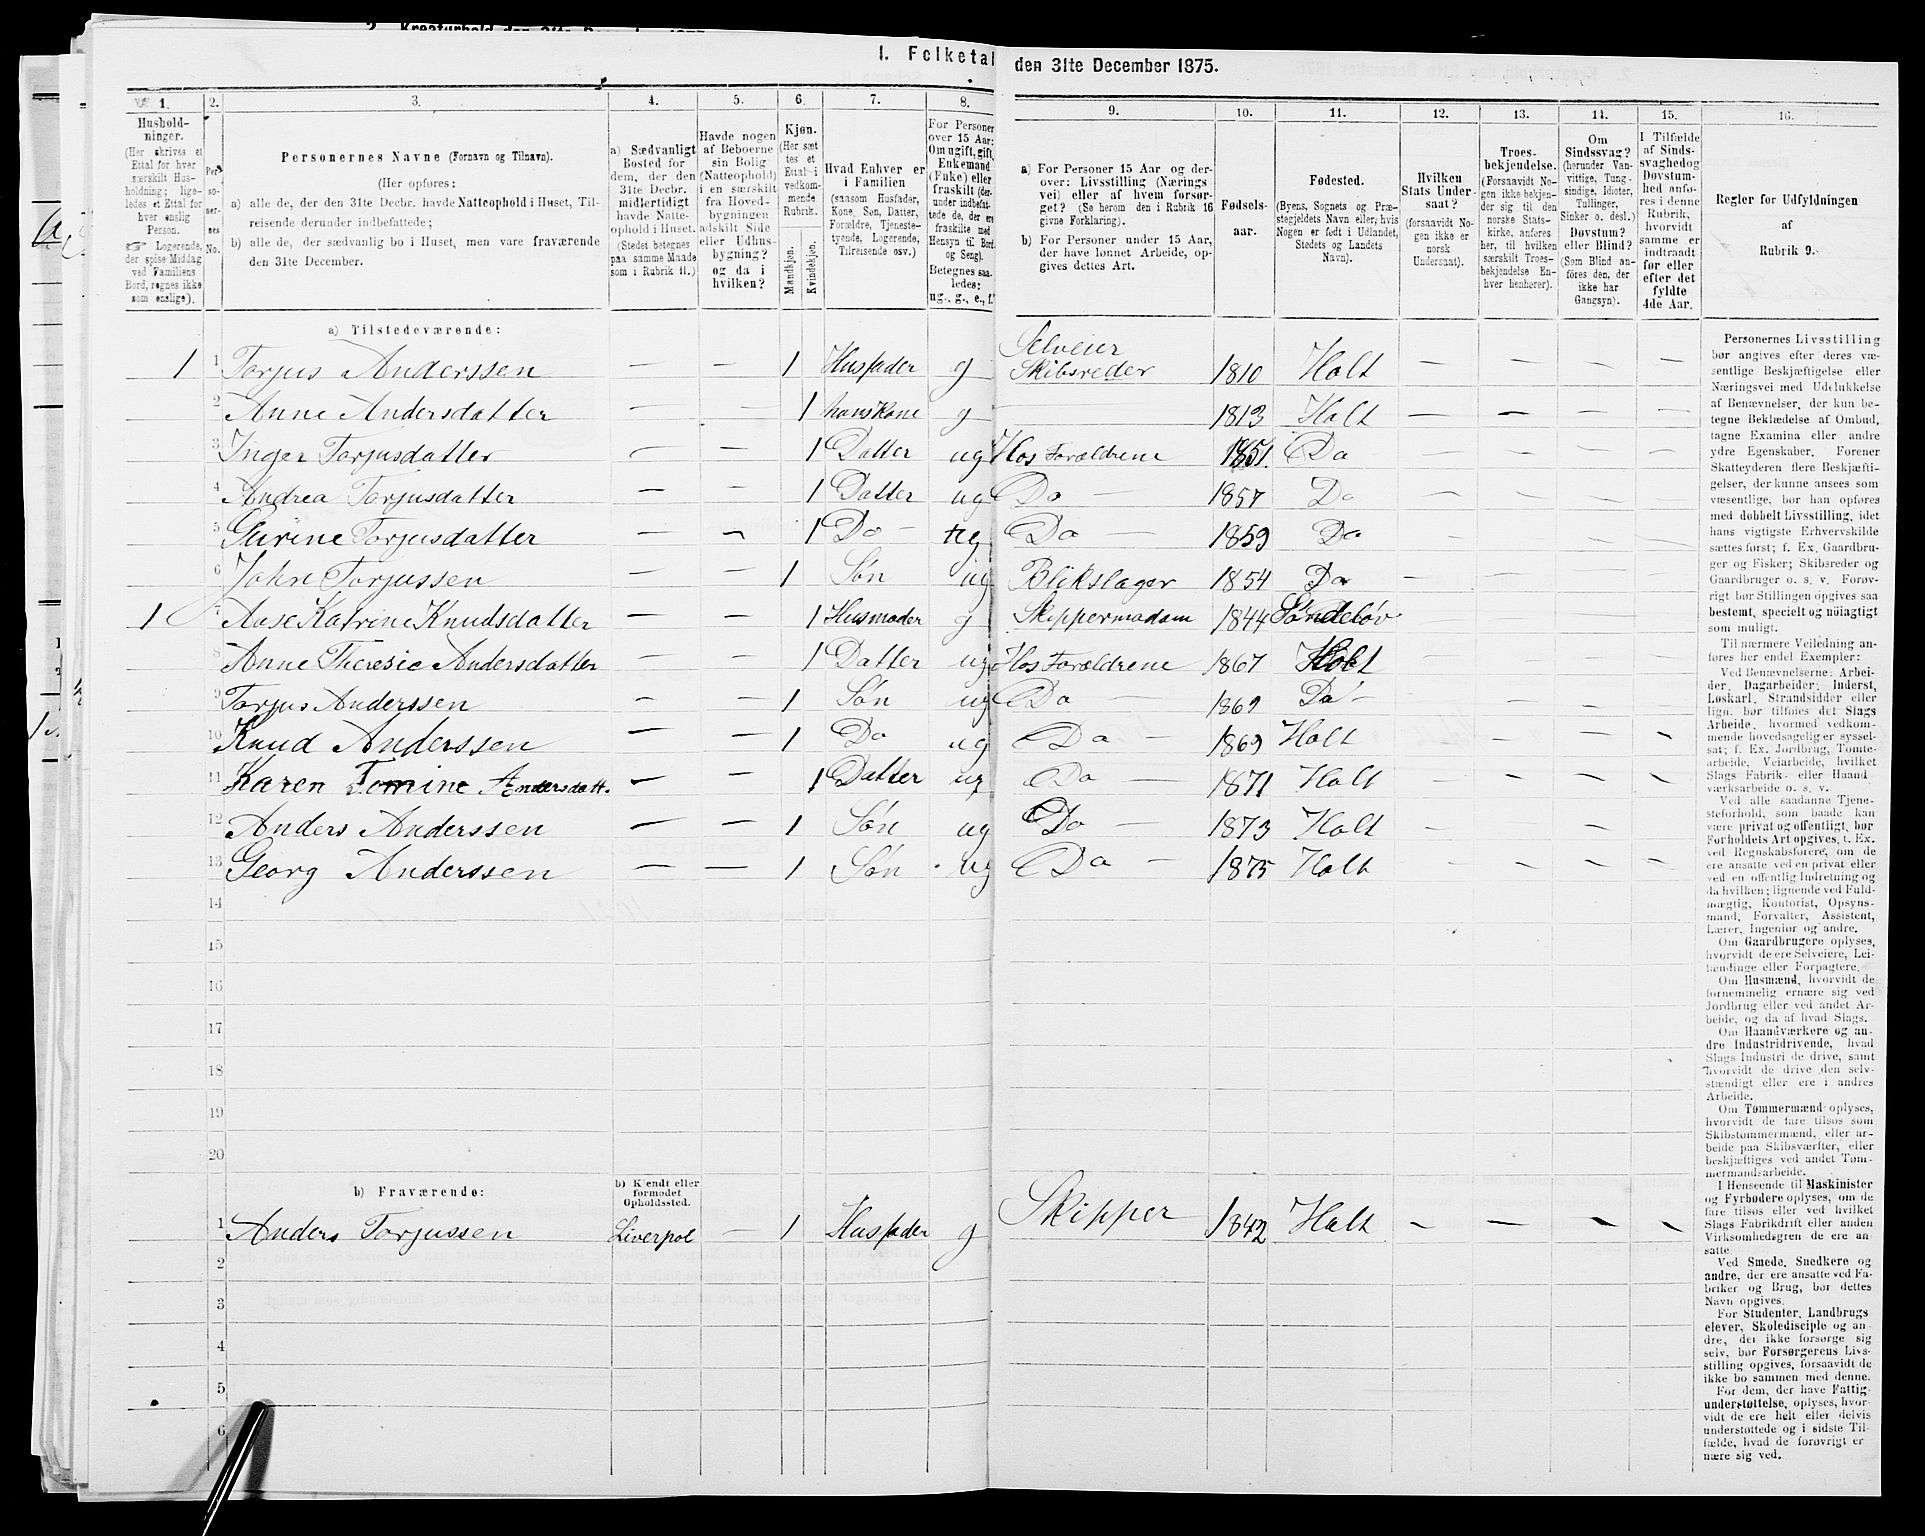 I. Folketal den 31te December 1875.
1. 2. 3. 4. 5. 6. 7. 8. 9. 10. 11. 12. 13. 14. 15. 16.
Husholdninger.
(Her skrives et
Ettal for hver
særskilt Husholdning; ligeledes
et Ettal for
hver enslig
Person.
☞ Logerende,
der spise Middag
ved Familiens
Bord, regnes ikke
som enslige).
Personernes No.
Personernes Navne (Fornavn og Tilnavn).
(Her opføres:
a) alle de, der den 31te Decbr. havde Natteophold i Huset, Tilreisende derunder indbefattede;
b) alle de, der sædvanlig bo i Huset, men vare fraværende
den 31te December.
a) Sædvanligt
Bosted for
dem, der den
31te Decbr.
midlertidigt
havde Natteophold i Huset.
(Stedet betegnes
paa samme Maade
som i Rubrik 11.)
Havde nogen
af Beboerne
sin Bolig
(Natteophold)
i en særskilt
fra Hovedbygningen
adskilt Side
eller Udhusbygning?
og da i
hvilken?
Kjøn.
(Her sættes et
Ettal i
vedkommende
Rubrik.
Mandkjøn.
Kvindekjøn.
Hvad Enhver er
i Familien
(saasom Husfader,
Kone, Søn, Datter,
Forældre, Tjenestetyende, Logerende,
Tilreisende osv.)
For Personer
over 15 Aar:
Om ugift, gift,
Enkemand
(Enke) eller
fraskilt
Betegnes saaledes:
ug., g., e., f.
a) For Personer 15 Aar og derover: Livsstilling (Næringsvei) eller af hvem forsørget? (Se herom den i Rubrik 16
givne Forklaring).
b) For Personer under 15 Aar,
der have lønnet Arbeide, opgives dettes Art.
Fødselsaar.
Fødested.
(Byens, Sognets og Præstegjeldets Navn eller, hvis
Nogen er født i Udlandet,
Stedets og Landets
Navn).
Hvilken
Stats Undersaat?
(forsaavidt Nogen ikke er
norsk
Undersaat).
Troesbekjendelse.
(Forsaavidt Nogen ikke bekjender sig til den
norske Statskirke, anføres
her, til hvilken
særskilt Troesbekjendelse Enhver henhører).
Om
Sindssvag?
(herunder Vanvittige, Tungsindige, Idioter,
Tullinger,
Sinker o. desl.)
Døvstum?
eller Blind?
(Som Blind anføres den, der
ikke har
Gangsyn).
I Tilfælde
af Sindssvaghed og
Døvstumhed anføres i denne
Rubrik,
hvorvidt
samme er
indtraadt
før eller
efter det
fyldte
4de Aar.
Regler for Udfyldningen
af
Rubrik 9.
a) Tilstedeværende:
1 1 Torjus Anderssen — — 1 Husfader g Selveier Skibsreder 1810 Holt — — — —
2 Anne Andersdatter — — 1 hans Kone g — 1813 Holt — — — —
3 Inger Torjusdatter — — 1 Datter ug Hos Forældrene 1851. Do — — — —
4 Andrea Torjusdatter — — 1 Datter ug Do — 1857 Do — — — —
5 Gurine Torjusdatter — — 1 Do — ug Do — 1859 Do — — — —
6 John Torjussen — — 1 Søn ug Blikslager 1854 Do — — — —
1 7 Aase Katrine Knudsdatter — — 1 Husmoder g Skippermadam 1844 Søndeløv — — — —
8 Anne Theresie Andersdatter — — 1 Datter ug Hos Forældrene 1867 Holt — — — —
9 Torjus Anderssen — — 1 Søn ug Do — 1869 Do — — — —
10 Knud Anderssen — — 1 Do ug Do — 1869 Holt — — —
11 Karen Tomine Andersdatt. — — 1 Datter ug Do — 1871 Holt — — — —
12 Anders Anderssen — — 1 Søn ug Do — 1873 Holt — — — —
13 Georg Anderssen — — 1 Søn ug Do — 1875 Holt — — — —
14
15
16
17
18
19
20
b) Fraværende:
b) Kjendt eller
formodet
Opholdssted.
1 Anders Torjussen Liverpol — 1 Husfader g Skipper 1842 Holt — — — —
2
3
4
5
6
Personernes Livsstilling
bør angives efter deres væsentlige Beskjæftigelse eller
Næringsvei med Udelukkelse
af Benævnelser, der kun betegne Beklædelse af Ombud,
tagne Examina eller andre
ydre Egenskaber. Forener
Skatteyderen flere Beskjæftigelser, der kunne ansees som
væsentlige, bør han opføres
med dobbelt Livsstilling, idet
hans vigtigste Erhvervskilde
sættes først; f. Ex. Gaardbruger og Fisker; Skibsreder og
Gaardbruger o. s. v. Forøvrigt bør Stillingen opgives saa
bestemt, specielt og nøiagtigt
som muligt.
Til nærmere Veiledning anføres her endel Exempler:
Ved Benævnelserne: Arbeider, Dagarbeider, Inderst,
Løskarl, Strandsidder eller
lign. bør tilføies det Slags
Arbeide, hvormed vedkommende hovedsagelig er sysselsat; f. Ex. Jordbrug, Tomtearbeide, Veiarbeide, hvilket
Slags Fabrik- eller Haandværksarbeide o. s. v.
Ved alle saadanne Tjenesteforhold, som baade kan
være privat og offentligt, bør
Forholdets Art opgives, f. Ex.
ved Regnskabsførere, om de
ere ansatte ved en privat eller
ved en offentlig Indretning og
da hvilken; lignende ved Fuldmægtig, Kontorist, Opsynsmand, Forvalter, Assistent,
Lærer, Ingeniør og andre.
Om Gaardbrugere oplyses,
hvorvidt de ere Selveiere, Leilændinge eller Forpagtere.
Om Husmænd, hvorvidt de
fornemmelig ernære sig ved
Jordbrug eller ved andet Arbeide, og da af hvad Slags.
Om Haandværkere og andre Industridrivende, hvad
Slags Industri de drive, samt
hvorvidt de drive den selvstændigt eller ere i andres
Arbeide.
Om Tømmermænd oplyses,
hvorvidt de fare tilsøs som
Skibstømmermænd, eller arbeide paa Skibsværfter, eller
beskjæftiges ved andet Tømmermandsarbeide.
I Henseende til Maskinister
og Fyrbødere oplyses, om de
fare tilsøs eller ved hvilket
Slags Fabrikdrift eller anden
Virksomhedsgren de ere ansatte.
Ved Smede, Snedkere og
andre, der ere ansatte ved Fabriker og Brug, bør dettes
Navn opgives.
For Studenter, Landbrugselever, Skoledisciple og andre, der ikke forsørge sig
selv, bør Forsørgerens Livsstilling opgives, forsaavidt de
ikke bo sammen med denne.
For dem, der have Fattigunderstøttelse, oplyses, hvorvidt de ere helt eller delvis
understøttede og i sidste Tilfælde, hvad de forøvrigt er
nære sig ved.